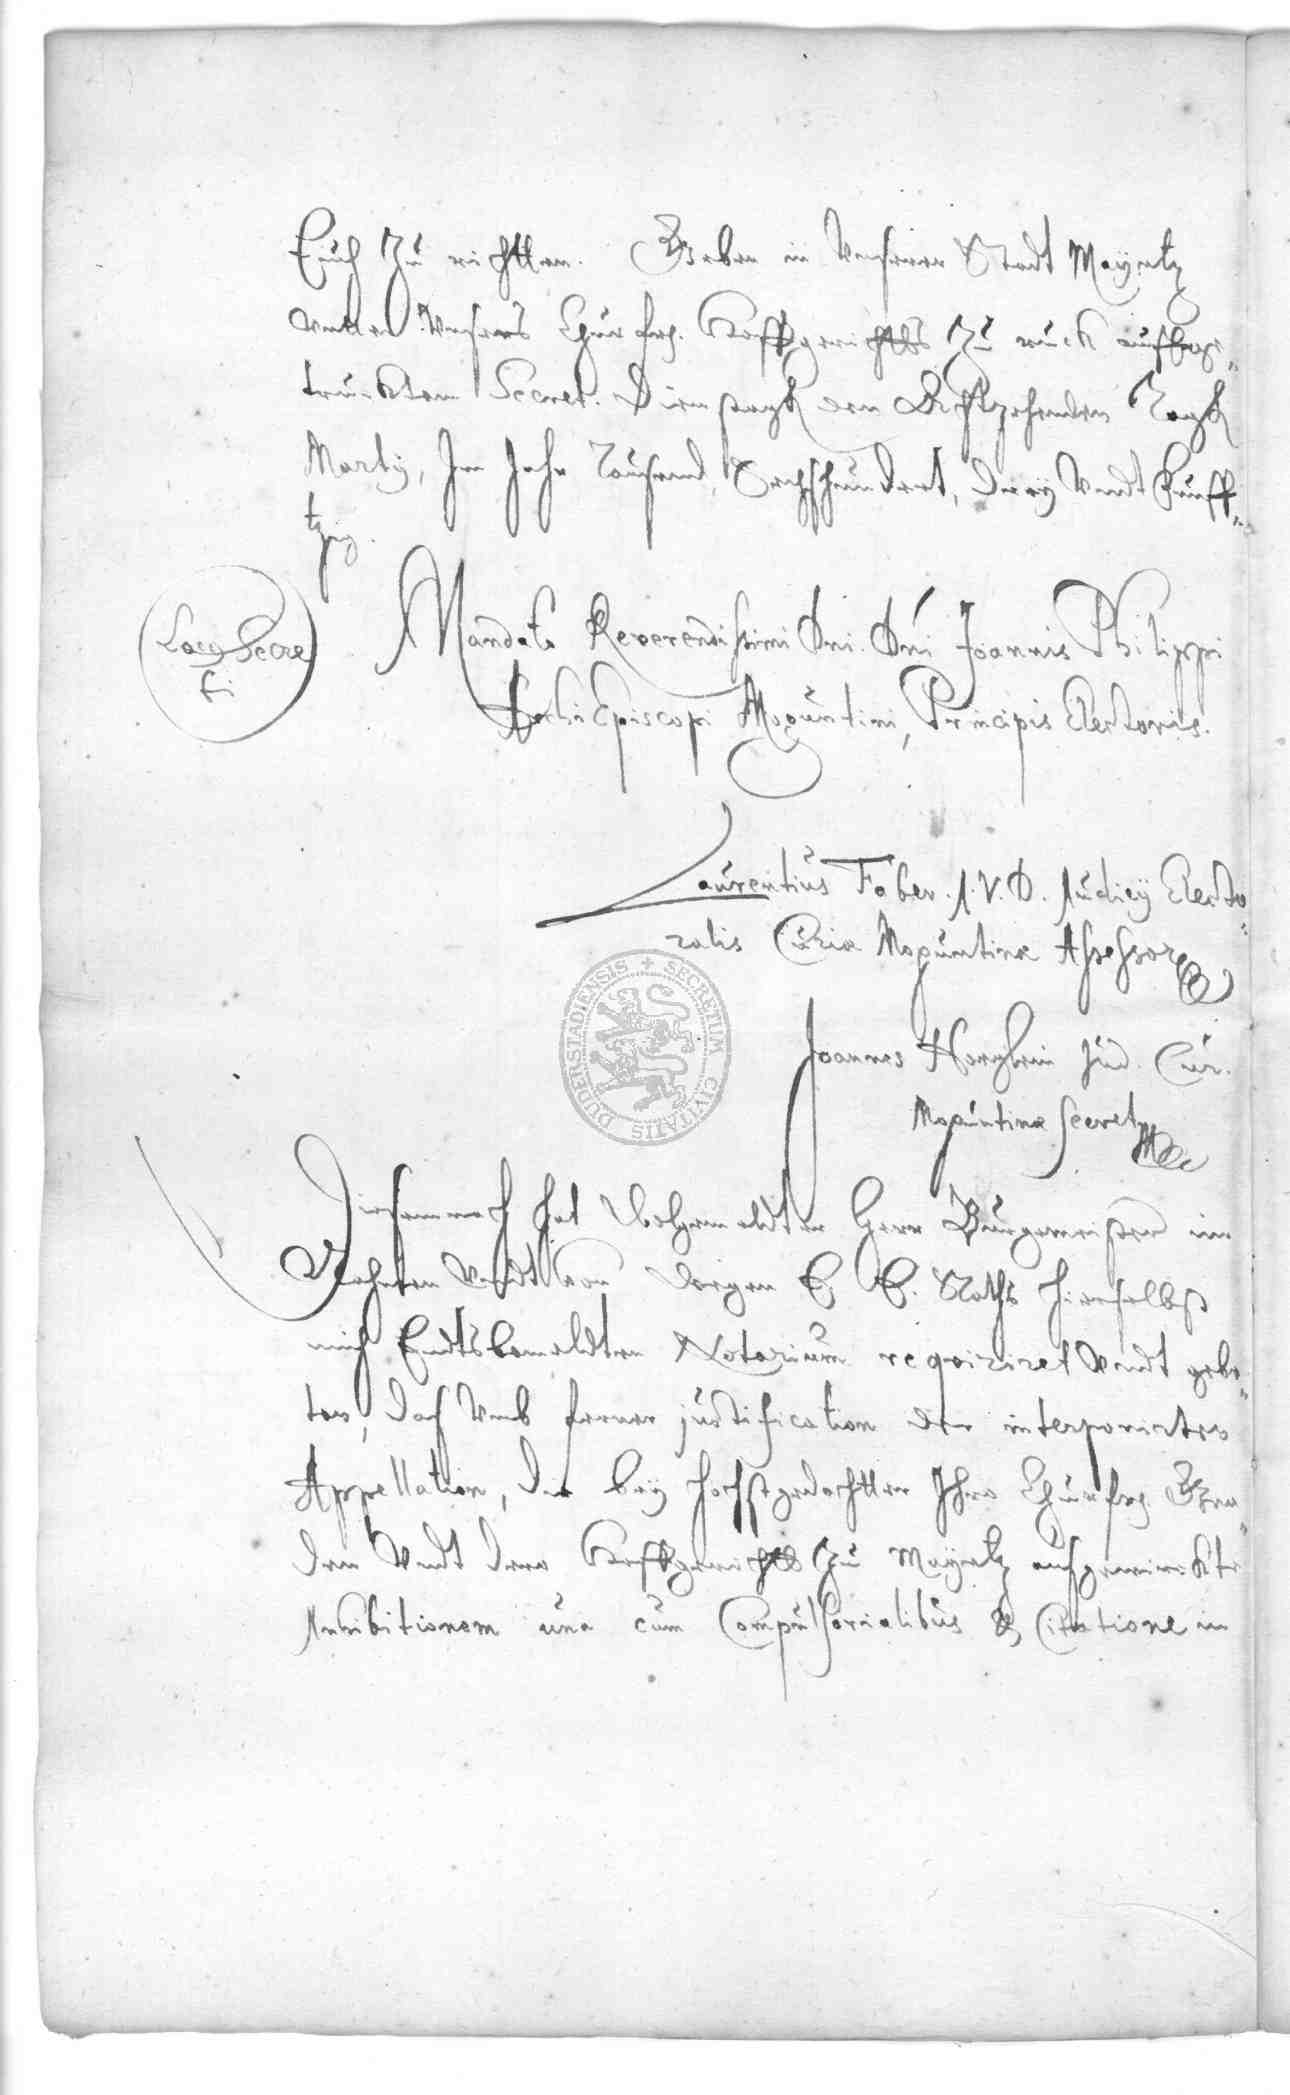 Euch Zu richtten. Geben in Unserer Stadt Mayntz
unter Unsers Churfrl. Hoffgerichtts Zu ruck auffge„
trucktem Secret. Dienstagk den Achtzehenden Tagk
Martij, Im Jahr Tausend, Sechshundert, drey Undt Funff„
tzig.
Locg Secre
ti
Mandato Reverendissimi Dni. Dni Joannis Philippi
Archi Episcopi Moguntini, Principis Electoris.
Laurentius Faber. I. V. D. Iudicij Electo„
ralis Curiæ Moguntinæ Assessor
SECRETUM CIVITATIS DUDERSTADIENSIS
Joannes Jud. Cur.
Moguntinæ Secret
Diesemnach hat Wohgemeldter Herr Burgemeister im
Nahmen Undt von wegen E. E. Raths hierselbst
mich Endtsbemeldten Notarium requiriret Undt gebe„
ten, daß Umb ferner justification der interponirter
Appellation, die bey höchstgedachtter Ihro Churfrl. Gna„
den Undt dero Hoffgerichtt Zu Mayntz außgewirckte
Inhibitionem una cum Compulsorialibus & Citatione in